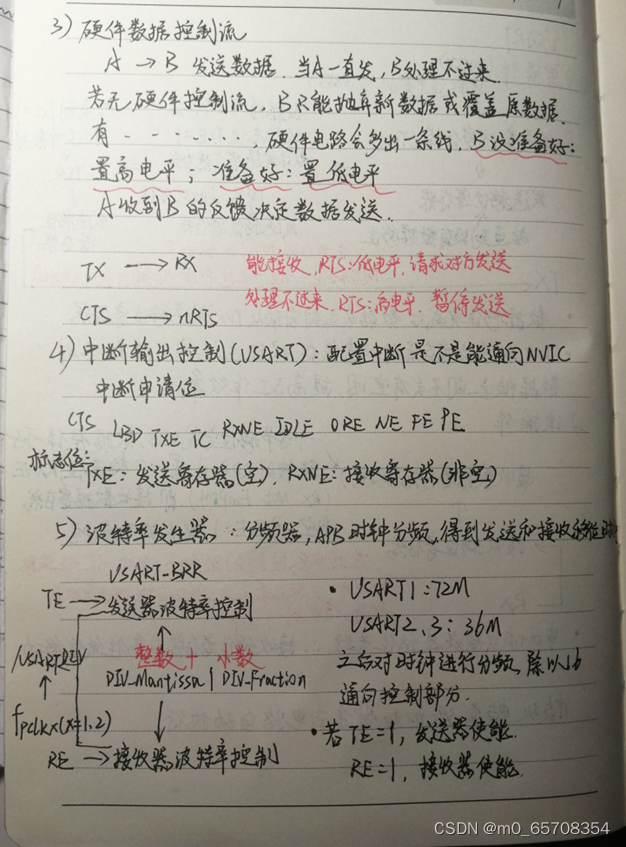 3) 硬件数据控制流
A → B 发送数据. 当A一直发, B处理不过来.
若无硬件控制流, B只能抛弃新数据或覆盖原数据.
有 · - - - - - - , 硬件电路会多出一条线, B没准备好:
置高电平; 准备好: 置低电平
A收到B的反馈决定数据发送.
TX → RX 能接收, RTS:低电平, 请求对方发送
处理不过来. RTS:高电平, 暂停发送
CTS → nRTS
4) 中断输出控制(USART): 配置中断是不是能通向NVIC
中断申请位
CTS LBD TXE TC RXNE IDLE ORE NE FE PE
标志位:
TXE: 发送寄存器(空), RXNE: 接收寄存器(非空)
5) 波特率发生器: 分频器, APB时钟分频, 得到发送和接收移位时
USART-BRR
TE → 发送器波特率控制
• USART1: 72M
USART2、3: 36M
/USARTDIV
整数 + 小数
DIV_Mantissa | DIV_Fraction
之后对时钟进行分频, 除以16
通向控制部分.
fPCLKx(x=1.2)
RE → 接收器波特率控制
• 若TE=1, 发送器使能.
RE=1, 接收器使能.
CSDN @m0_65708354